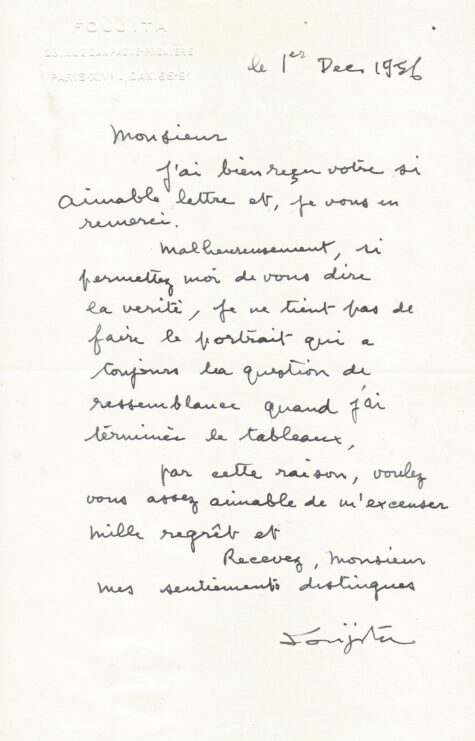 FOUJITA
23, RUE CAMPAGNE-PREMIÈRE
PARIS-XIVe. DAN.65-91
le 1er Dec. 1956
Monsieur
J'ai bien reçu votre si
aimable lettre et, je vous en
remerci.
Malheureusement, si
permettez moi de vous dire
la verité, je ne tient pas de
faire le portrait qui a
toujours la question de
ressemblance quand j'ai
términée le tableaux,
par cette raison, voulez
vous assez aimable de m'excenser
mille regrêt et
Recevez, Monsieur
mes sentiements distingues
Foujita